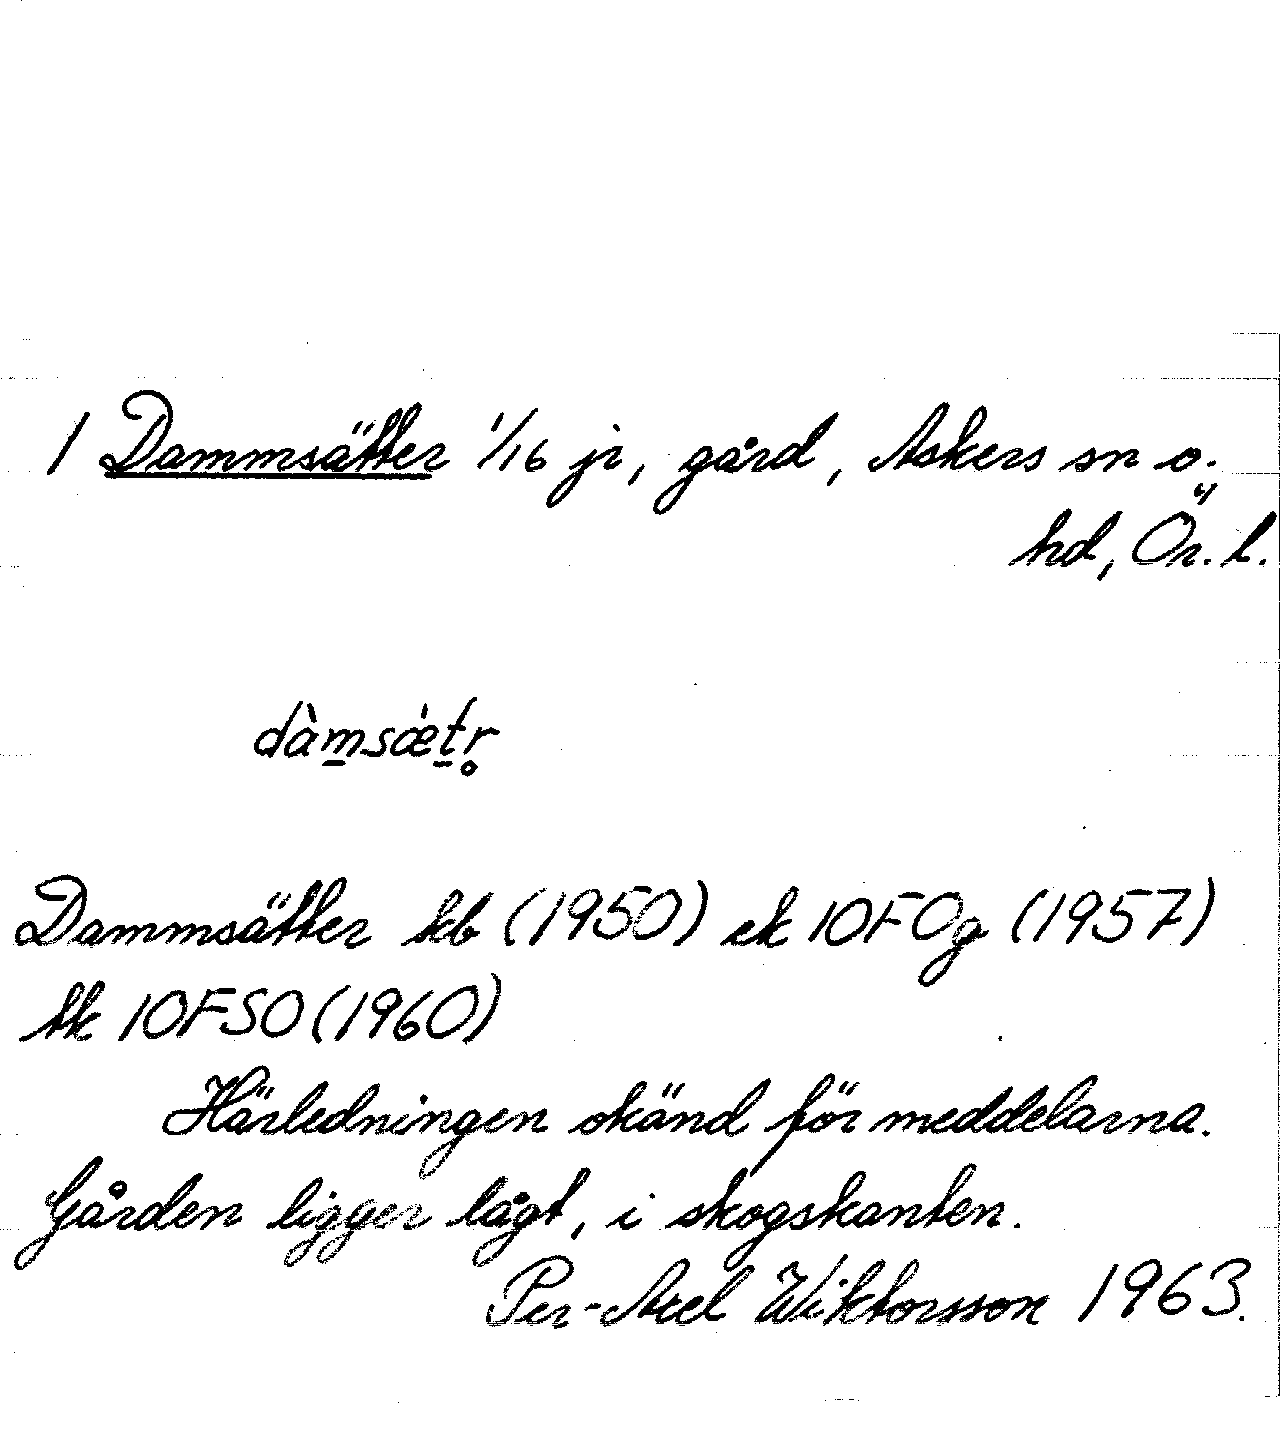 1 Dammsätter 1/16 jr, gård, Askers sn o.
hd, Ör. l.
dàm̲sǽt̲r̥
Dammsätter kb (1950) ek 10FOg (1957)
tk 10FSO (1960)
Härledningen okänd för meddelarna.
Gården ligger lågt, i skogskanten.
Per-Axel Wiktorsson 1963.